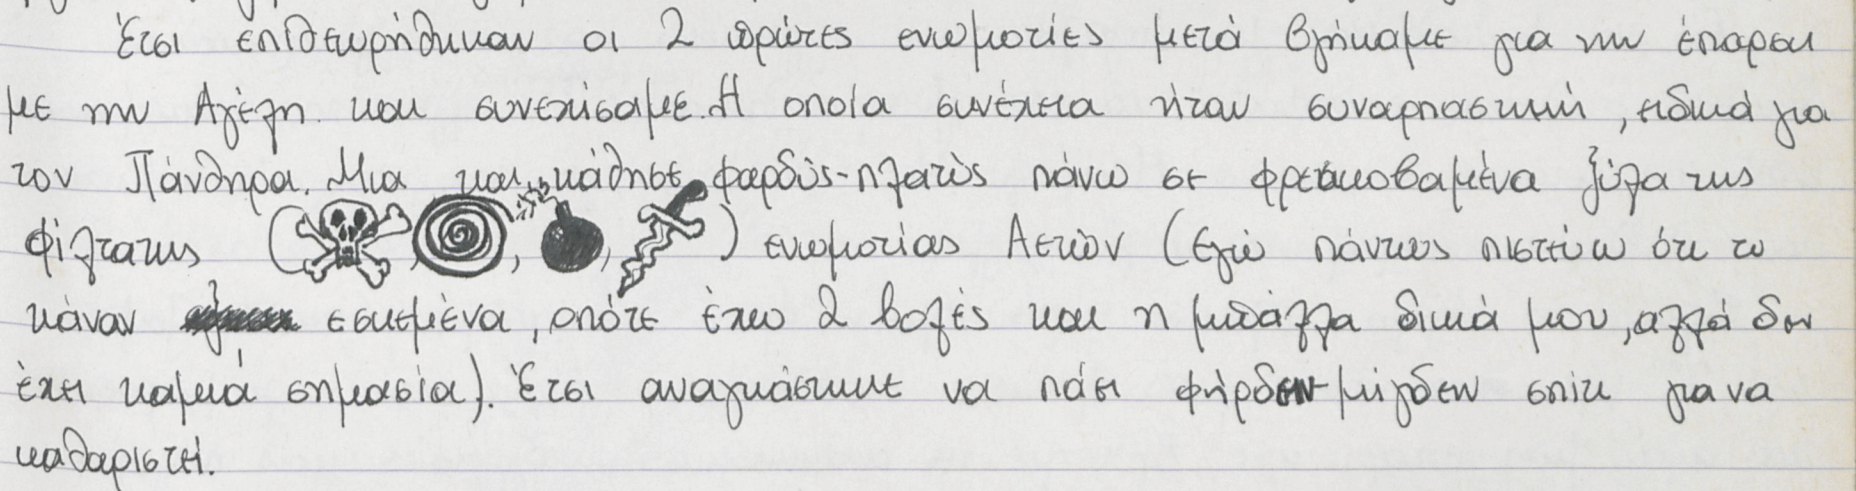 Έτσι επιθεωρήθηκαν οι 2 πρώτες ενωμοτίες μετά βγήκαμε για την έπαρση
με την Αγέλη και συνεχίσαμε. Η οποία συνέχεια ήταν συναρπαστική, ειδικά για
τον Πάνθηρα. Μια και κάθησε φαρδύς-πλατύς πάνω σε φρεσκοβαμένα ξύλα της
φίλτατης ( , , , ) ενωμοτίας Αετών (Εγώ πάντως πιστεύω ότι το
κάναν εσκεμένα, οπότε έχω 2 βολές και η μπάλλα δικιά μου, αλλά δεν
έχει καμμιά σημασία). Έτσι αναγκάστηκε να πάει φύρδειν-μίγδειν σπίτι για να
καθαριστεί.